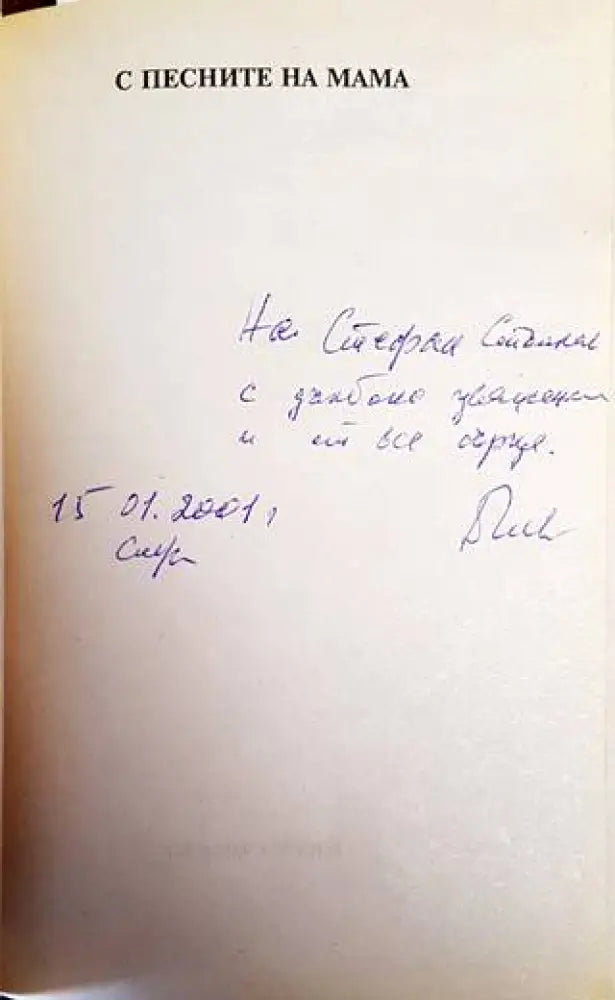 С ПЕСНИТЕ НА МАМА
На Стефан
с дълбоко уважение
и от все сърце.
15 01. 2001 г.